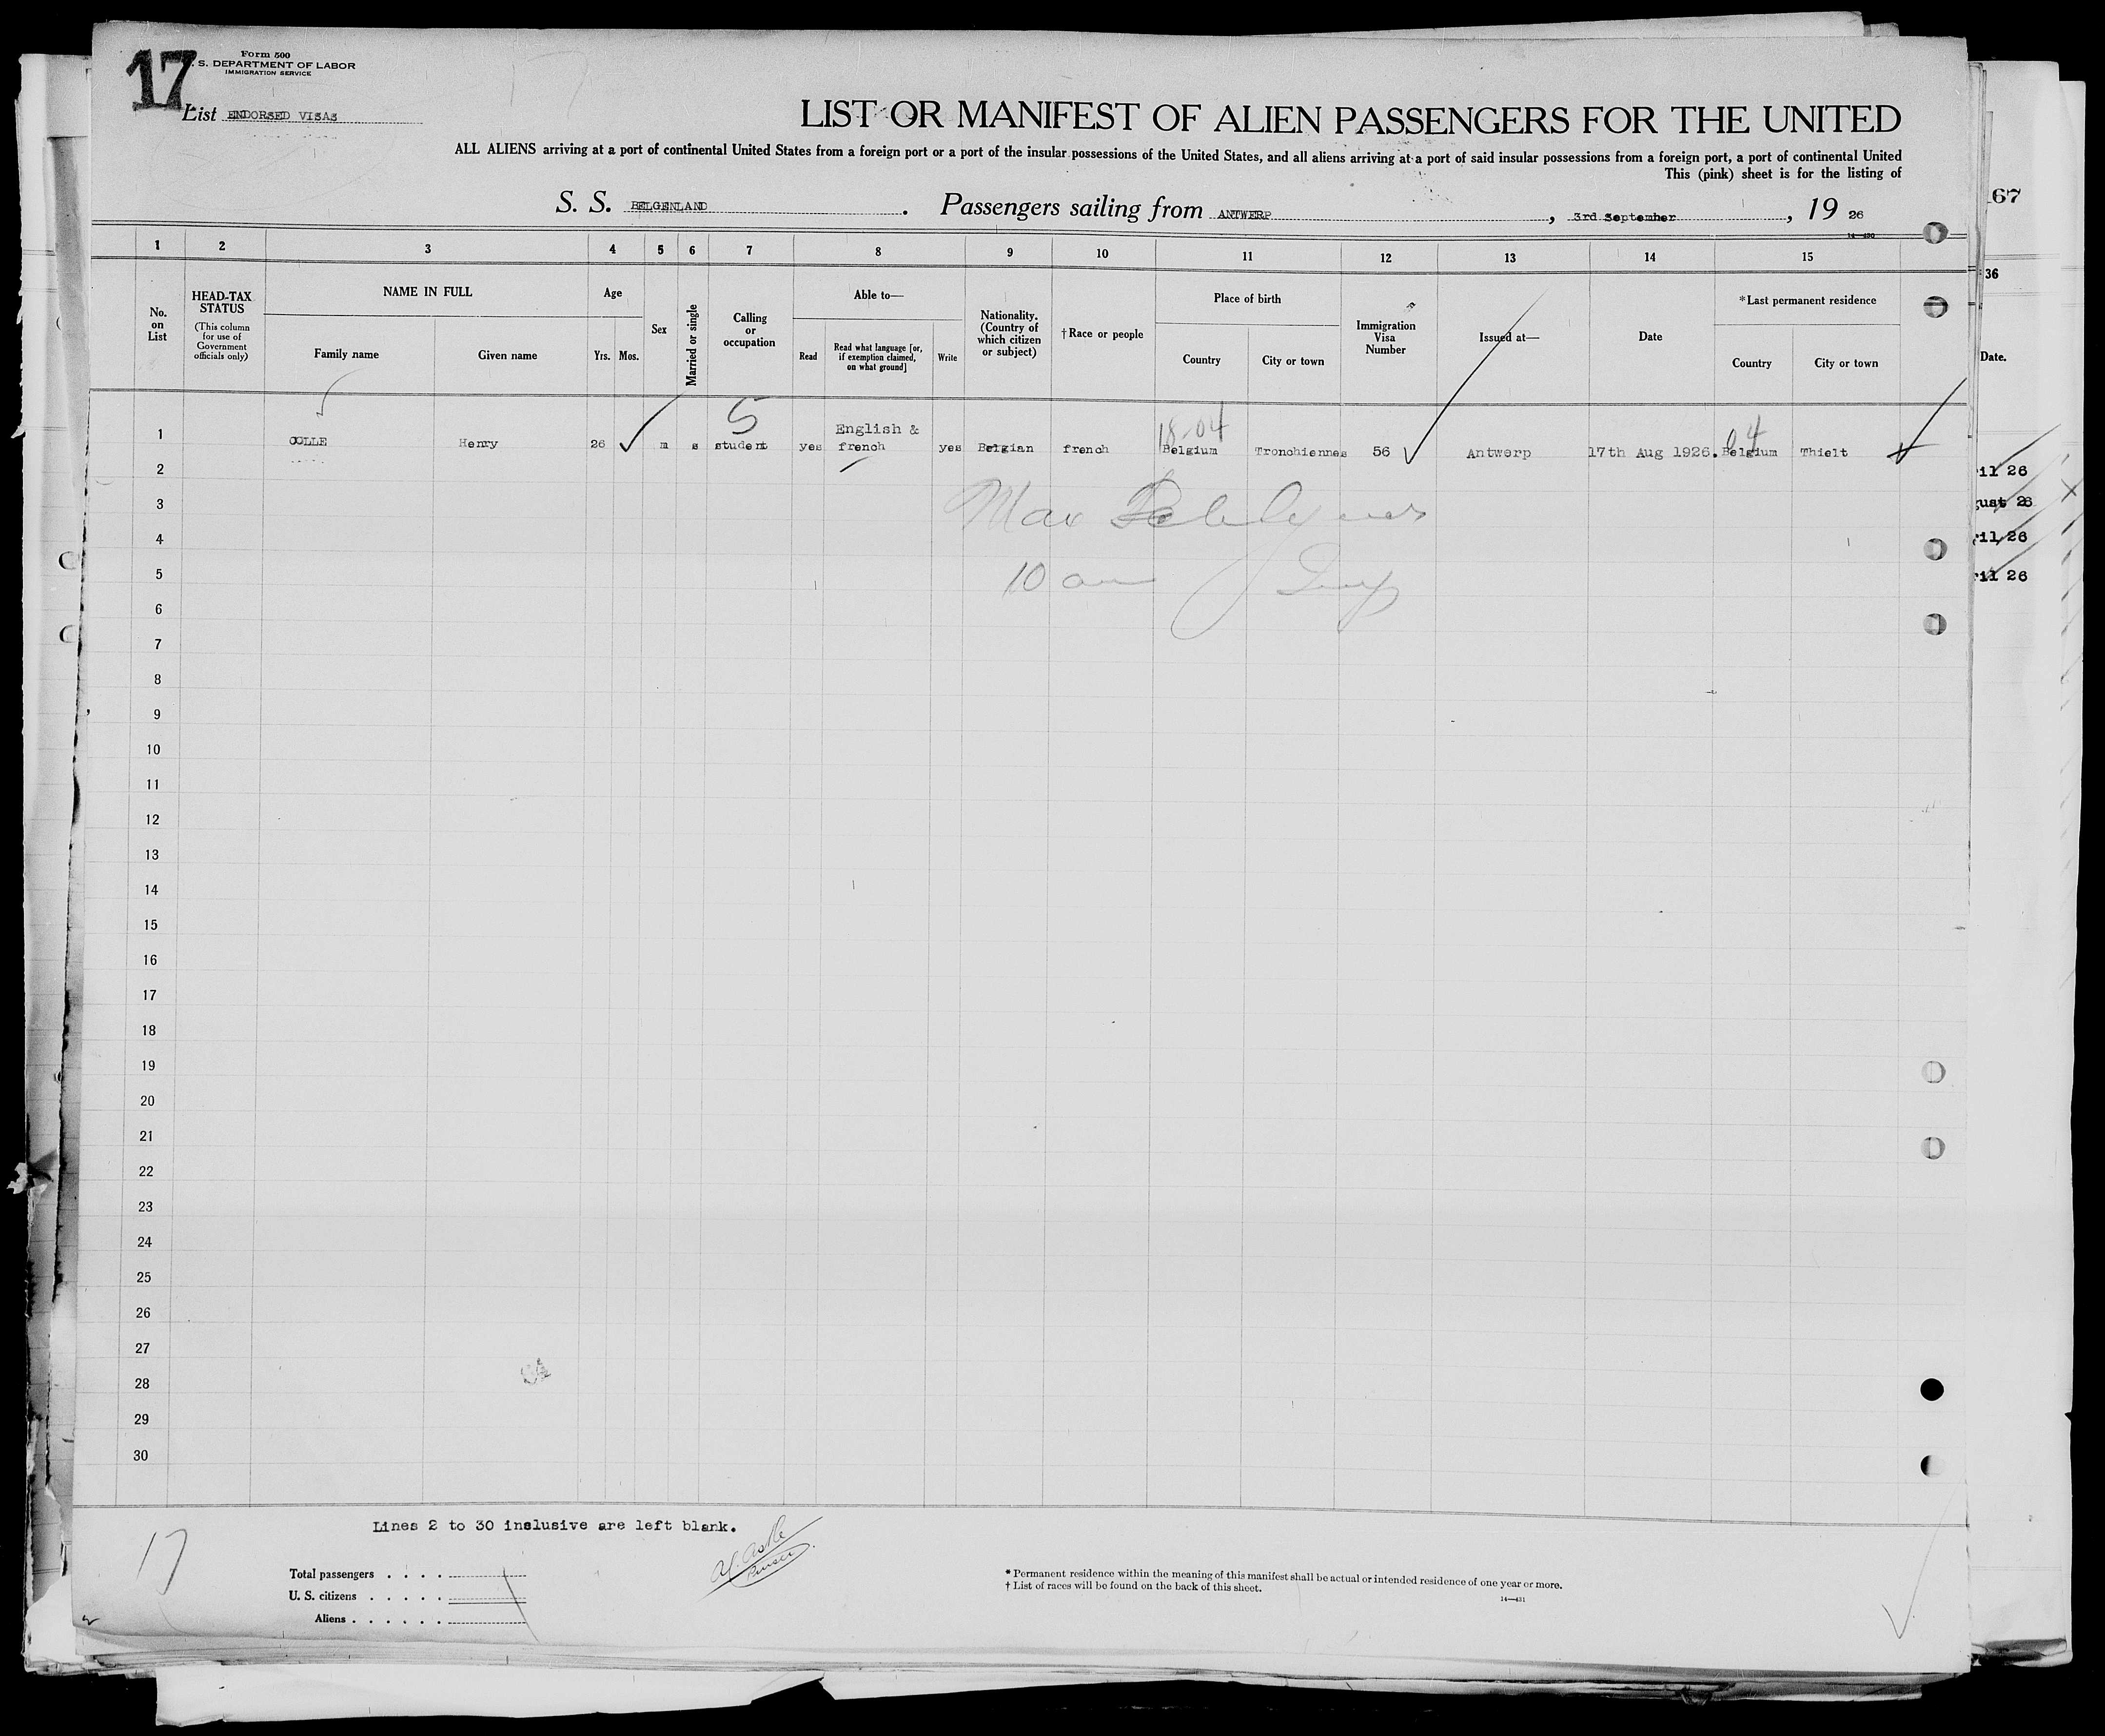 17
Form 500
S. DEPARTMENT OF LABOR
IMMIGRATION SERVICE
List ENDORSED VISAS
LIST OR MANIFEST OF ALIEN PASSENGERS FOR THE UNITED
ALL ALIENS arriving at a port of continental United States from a foreign port or a port of the insular possessions of the United States, and all aliens arriving at a port of said insular possessions from a foreign port, a port of continental United
This (pink) sheet is for the listing of
S. S. BELGENLAND. Passengers sailing from ANTWERP, 3rd September, 19 26
14—430
67
1 2 3 4 5 6 7 8 9 10 11 12 13 14 15
36
No. on List
HEAD-TAX STATUS
(This column for use of Government officials only)
NAME IN FULL
Family name Given name
Age
Yrs. Mos.
Sex
Married or single
Calling or occupation
Able to—
Read
Read what language [or, if exemption claimed, on what ground]
Write
Nationality. (Country of which citizen or subject)
†Race or people
Place of birth
Country City or town
Immigration Visa Number
Issued at—
Date
*Last permanent residence
Country City or town
Date.
5 18-04 04
1 COLLE Henry 26 m s student yes English & french yes Belgian french Belgium Tronchiennes 56 Antwerp 17th Aug 1926. Belgium Thielt
2
ril 26
3
Max
gust 26
4
ril 26
5
10 am
ril 26
6
7
8
9
10
11
12
13
14
15
16
17
18
19
20
21
22
23
24
25
26
27
28
29
30
Lines 2 to 30 inslusive are left blank.
17
Purser
Total passengers . . . .
U. S. citizens . . . . .
Aliens . . . . . .
* Permanent residence within the meaning of this manifest shall be actual or intended residence of one year or more.
† List of races will be found on the back of this sheet.
14—431